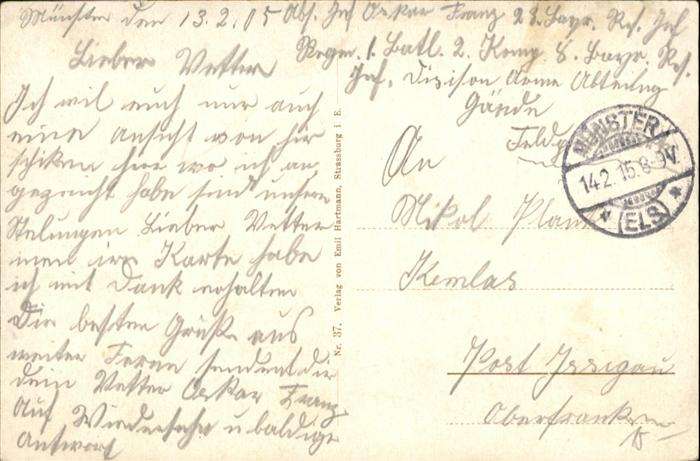 Münster den 13.2.05 Abs. Inf Oskar Franz 23. Bayr. Res. Inf
Regm. 1. Batl. 2. Komp. 8. Bayr. Res.
Inf. Divison Arme Abteilug
Gände
Feldp
Lieber Vetter
Ich wil euch nur auch
eine ansicht von hir
schiken hir wo ich an
gezeicht habe sind unsere
Stelungen Lieber Vetter
eire Karte habe
ich mit Dank erhalten
Die besten Grüße aus
weiter Ferne sendent dir
dein Vetter Oskar Franz
Auf Wiedersehn u baldige
Antwort
Nr. 37. Verlag von Emil Hartmann, Strassburg i. E.
MÜNSTER
14.2.15.8-9V.
* (ELS) *
An
Mikol Plan
Kemlas
Post Issigau
Oberfranken